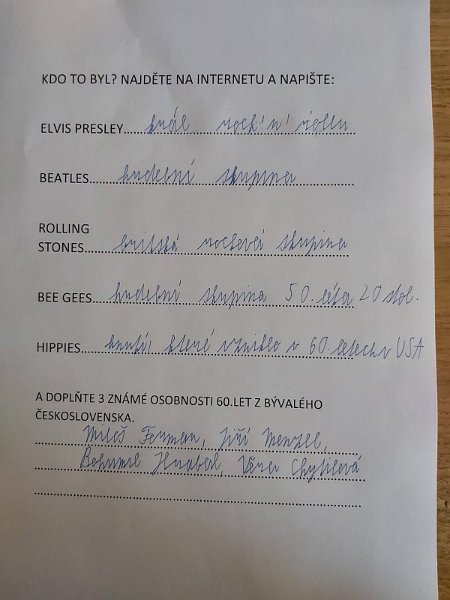 KDO TO BYL? NAJDĚTE NA INTERNETU A NAPIŠTE:
ELVIS PRESLEY....král rock'n'rollu
BEATLES....hudební skupina
ROLLING
STONES....britská rocková skupina
BEE GEES....hudební skupina 50. léta 20 stol.
HIPPIES....hnutí, které vzniklo v 60. letech v USA
A DOPLŇTE 3 ZNÁMÉ OSOBNOSTI 60.LET Z BÝVALÉHO
ČESKOSLOVENSKA.
Miloš Forman, Jiří Menzel,
Bohumil Hrabal, Věra Chytilová